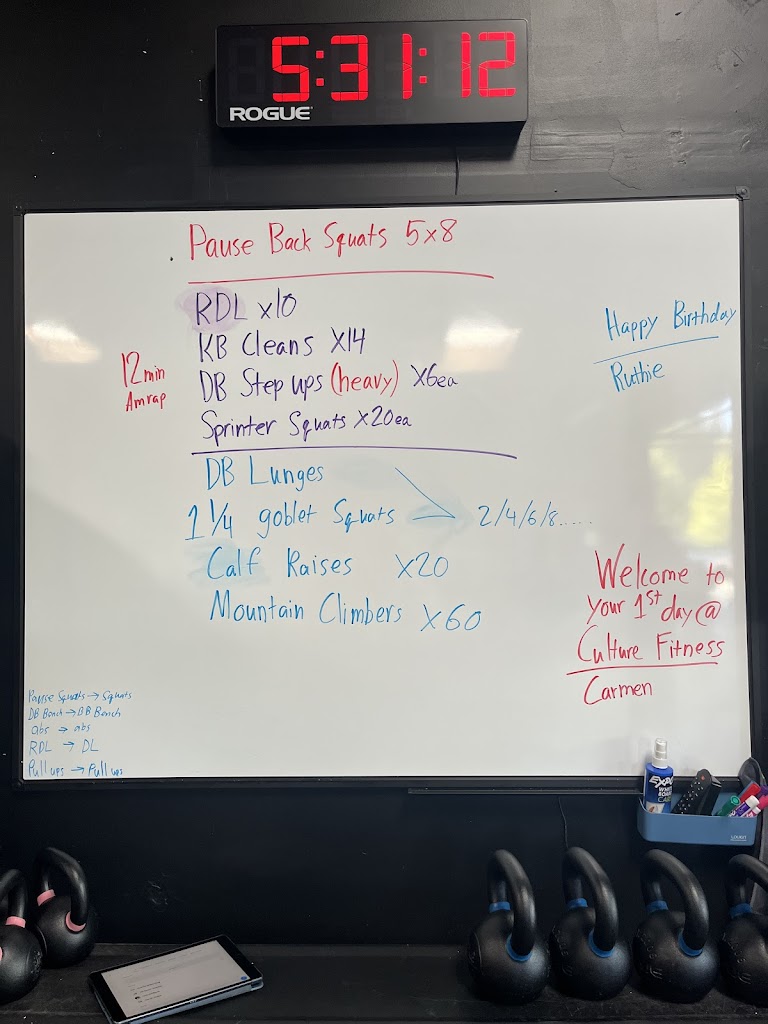 5:31:12
ROGUE
Pause Back Squats 5x8
RDL x10
KB Cleans X14
DB Step ups (heavy) X6ea
Sprinter Squats X20ea
12min
Amrap
DB Lunges
1 1/4 goblet Squats 2/4/6/8......
Calf Raises X20
Mountain Climbers X60
Happy Birthday
Ruthie
Welcome to
your 1st day @
Culture Fitness
Carmen
Pause Squats → Squats
DB Bench → BB Bench
abs → abs
RDL → DL
Pull ups → Pull ups
EXPO
WHITE
BOARD
CARE